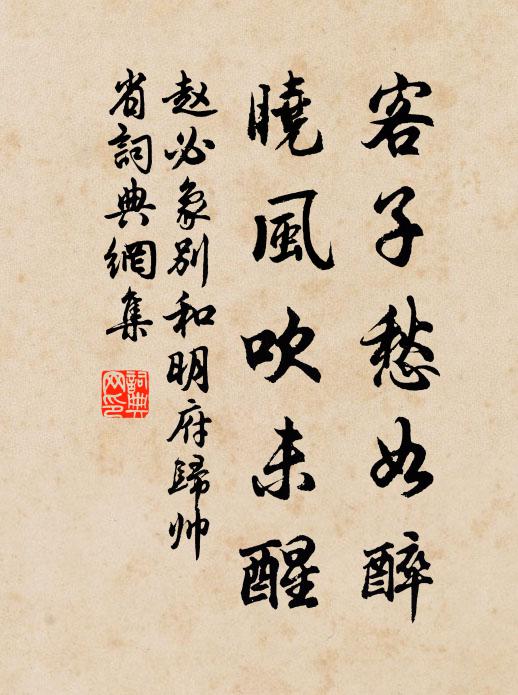 客子愁如醉
曉風吹未醒
赵必象別和明府歸帅
省詞典網集
詞典
网印